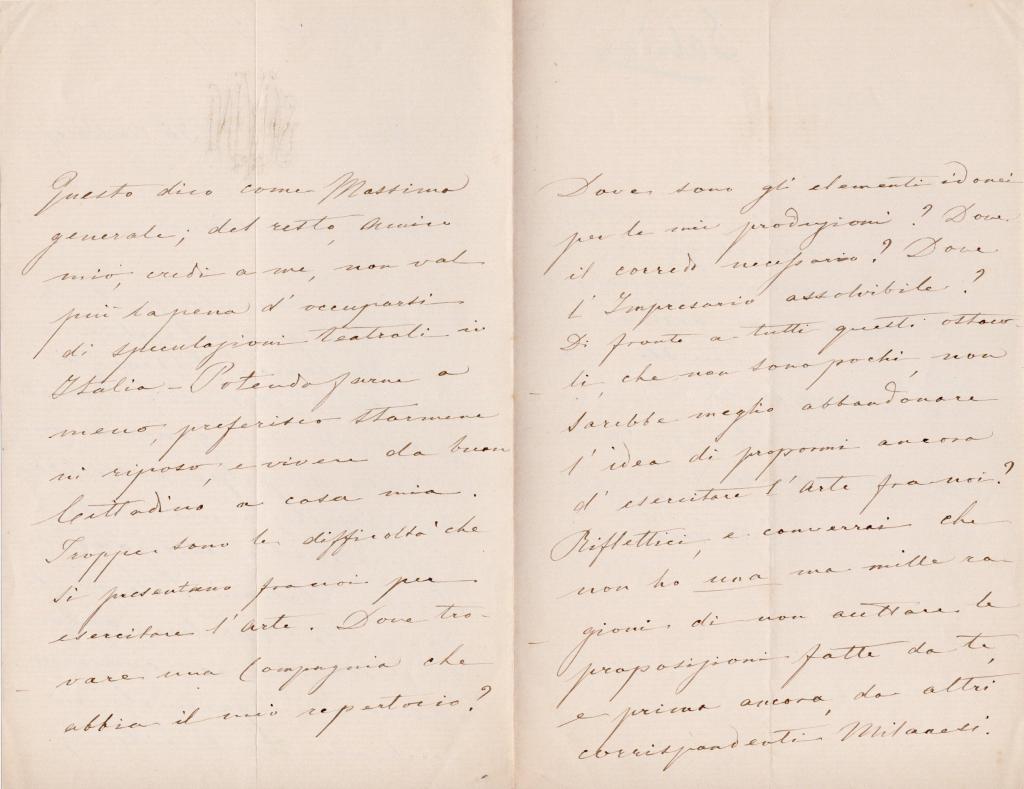 Questo dico come Massima
generale; del resto, Amico
mio, credi a me, non val
più la pena d'occuparsi
di speculazioni teatrali in
Italia – Potendo farne a
meno, preferisco starmene
in riposo, e vivere da buon
Cittadino a casa mia.
Troppe sono le difficoltà che
si presentano fra noi per
esercitare l'Arte. Dove tro-
vare una Compagnia che
abbia il mio repertorio?
Dove sono gli elementi idonei
per le mie produzioni? Dove
il corredo necessario? Dove
l'Impresario assolvibile?
Di fronte a tutti questi ostaco-
li, che non sono pochi, non
sarebbe meglio abbandonare
l'idea di propormi ancora
d'esercitare l'Arte fra noi?
Riflettici, e converrai che
non ho una ma mille ra-
gioni di non accettare le
proposizioni fatte da te,
e prima ancora, da altri
corrispondenti Milanesi.